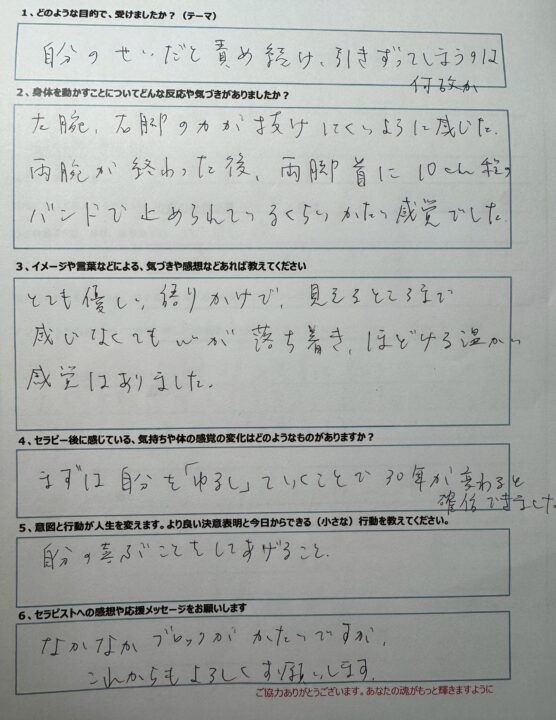 1、どのような目的で、受けましたか？（テーマ）
自分のせいだと責め続け、引きずってしまうのは
何故か
2、身体を動かすことについてどんな反応や気づきがありましたか？
左腕、右脚の力が抜けしていくように感じた。
両腕が終わった後、両脚首に10cm程の
バンドで止められているくらいかたい感覚でした。
3、イメージや言葉などによる、気づきや感想などあれば教えてください
とても優しい語りかけで、見えるところまで
感じなくても心が落ち着き、ほどける温かい
感覚はありました。
4、セラピー後に感じている、気持ちや体の感覚の変化はどのようなものがありますか？
まずは自分を「ゆるし」ていくことで30年が変わると
確信できました。
5、意図と行動が人生を変えます。より良い決意表明と今日からできる（小さな）行動を教えてください。
自分の喜ぶことをしてあげること。
6、セラピストへの感想や応援メッセージをお願いします
なかなかブロックがかたいですが、
これからもよろしくお願いします。
ご協力ありがとうございます。あなたの魂がもっと輝きますように